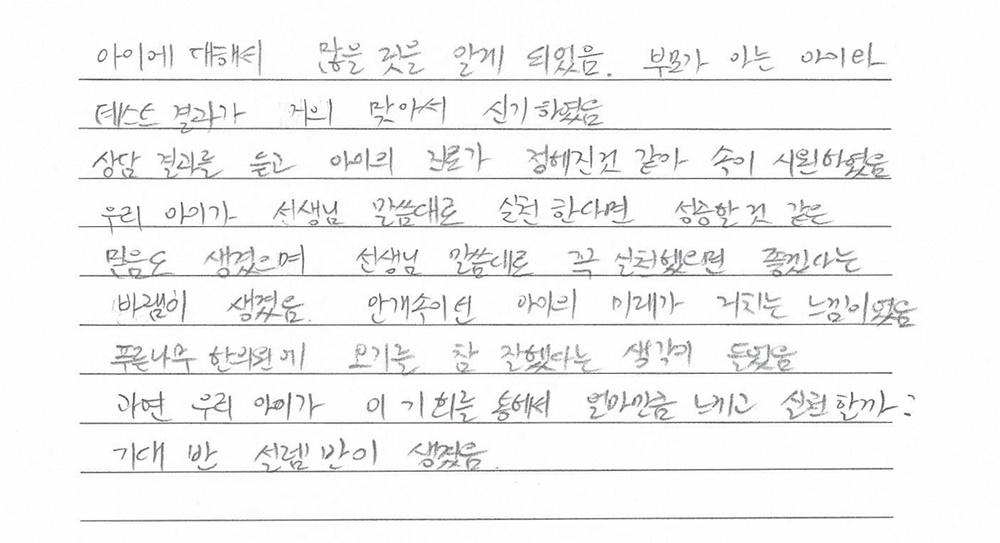 아이에 대해서 많을 것을 알게 되었음. 부모가 아는 아이와
테스트 결과가 거의 맞아서 신기하였음
상담 결과를 듣고 아이의 진로가 정해진것 같아 속이 시원하였음
우리 아이가 선생님 말씀대로 실천 한다면 성공할 것 같은
믿음도 생겼으며 선생님 말씀대로 꼭 실천했으면 좋겠다는
바램이 생겼음. 안개속이던 아이의 미래가 거치는 느낌이였음
푸른나무 한의원에 오기를 참 잘했다는 생각이 들었음
과연 우리 아이가 이 기회를 통해서 얼마만큼 느끼고 실천 할까?
기대 반 설렘 반이 생겼음.